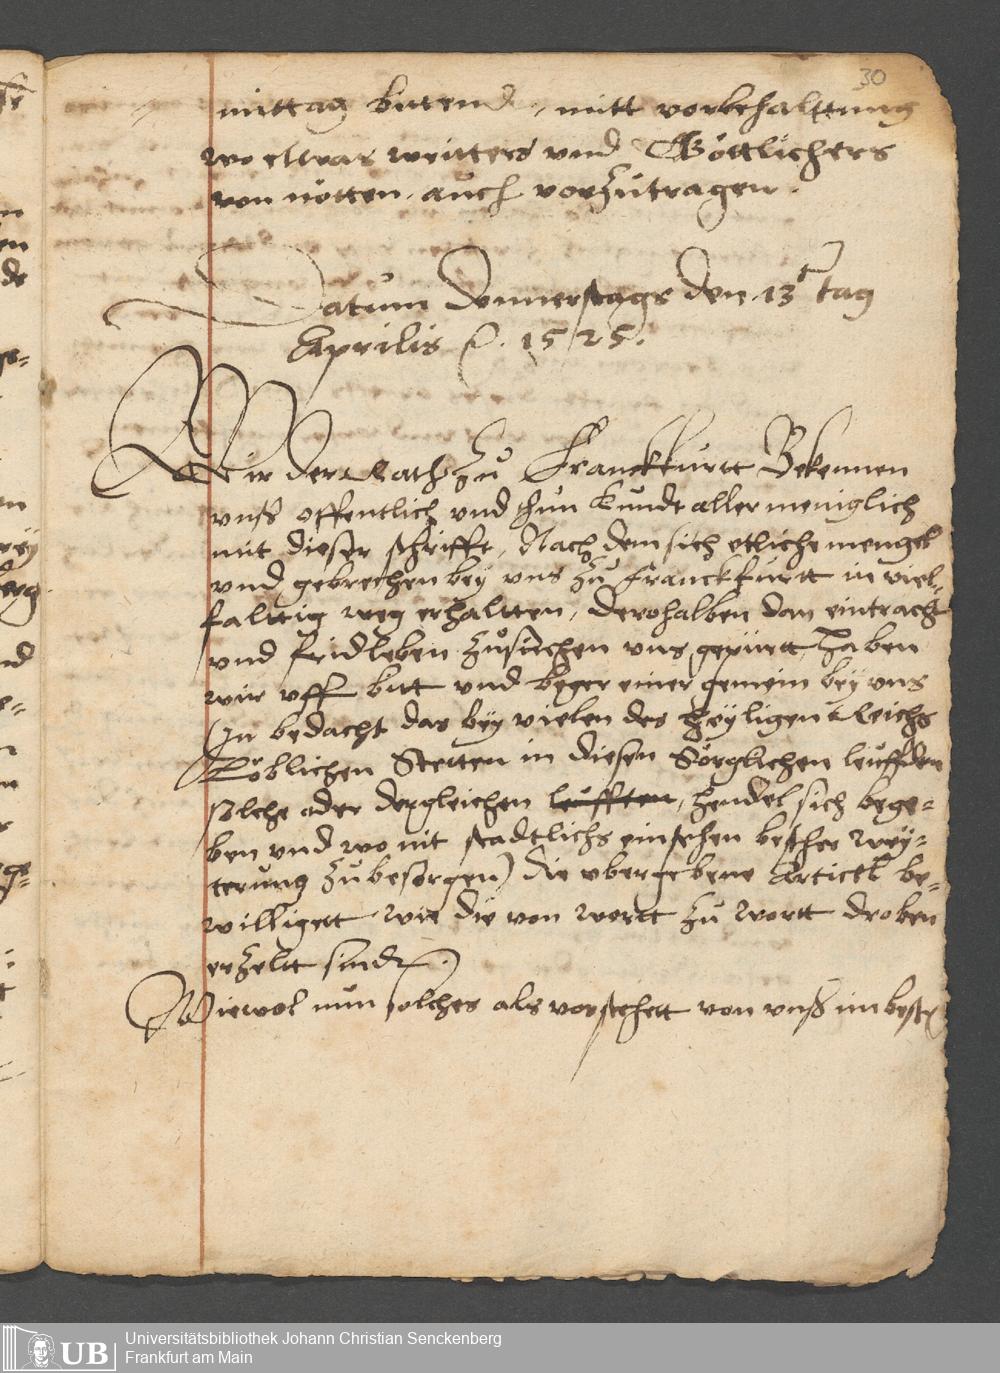 30
mittag bittend, mitt vorbehalttung
wo ettwas weitters vnd Göttlichers
von nötten auch vorzůtragen.
Datum Donnerstags den 13 tag
Aprilis 1525.
Wir der Rath zů Franckfurtt Bekennen
vnß offentlich vnd thun kundt allermeniglich
mit dieser schrifft, Nach dem sich etliche mengel
vnd gebrechen bey vns zů Franckfurtt in viel-
falttig weg erhaltten, derohalben dan eintracht
vnd fridleben zůsůchen vns gepürtt, Haben
wir vff bitt vnd beger einer gemein bey vns
(In bedacht das bey vielen des Heyligen Reichs
Löblichen Stetten in diesen Sorglichen leufften
solche oder dergleichen leufften, hendel sich bege-
ben vnd wo nit stadtlichs einsehen beschee wey-
terung zů besorgen) die vbergebene Articel be-
willigett wie die von wortt zů wortt droben
erzeltt sindt.
Wiewol nun solches als vorstehett von vnß im besten
UB
Universitätsbibliothek Johann Christian Senckenberg
Frankfurt am Main